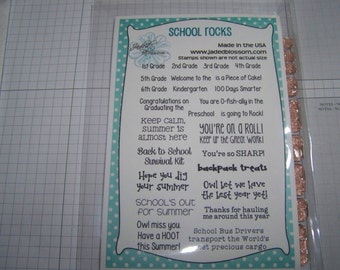 SCHOOL ROCKS
Jaded Blossom
Made in the USA
www.jadedblossom.com
Stamps shown are not actual size
1st Grade 2nd Grade 3rd Grade 4th Grade
5th Grade Welcome to the is a Piece of Cake!
6th Grade Kindergarten 100 Days Smarter
Congratulations on
Graduating the
You are O-fish-ally in the
Preschool is going to Rock!
Keep calm,
summer is
almost here
You're on a Roll!
Keep up the Great Work!
Back to School
Survival Kit
You're so SHARP!
Hope you dig
your summer
backpack treats
Owl let we have
the best year yet!
SCHOOL'S OUT
for Summer
Thanks for hauling
me around this year
Owl miss you
Have a HOOT
this Summer!
School Bus Drivers
transport the World's
most precious cargo